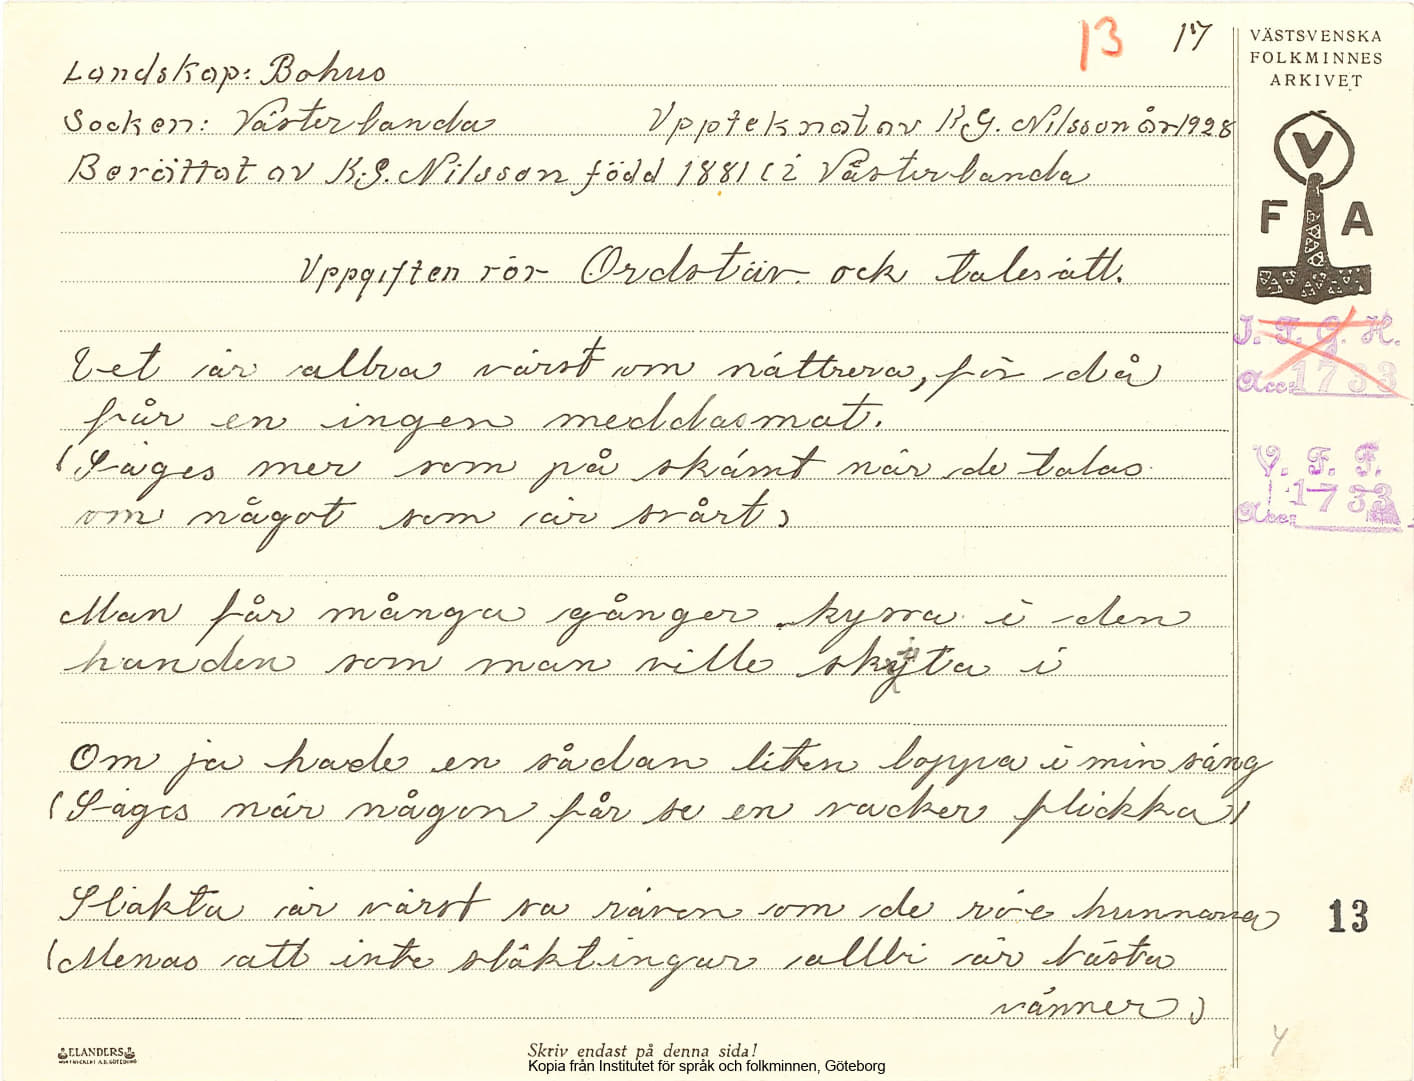 13 17
VÄSTSVENSKA
FOLKMINNES
ARKIVET
Landskap: Bohus
Socken: Västerlanda Uppteknat av K.G. Nilsson år 1928
Berättat av K.G. Nilsson född 1881 i Västerlanda
V
F A
Uppgiften rör Ordstäv ock talesätt.
J. F. G. H.
Acc: 1733
Det är allra värst om nättrera, för då
får en ingen meddasmat.
(Säges mer som på skämt när de talas
om något som är svårt)
V. F. F.
Acc: 1733
Man får många gånger kyssa i den
handen som man ville skyta i
Om ja hade en sådan liten loppa i min säng
(Säges när någon får se en vacker flickka)
Släkta är värst sa räven om de röe hunnarna
13
(Menas att inte släktingar allti är bästa
vänner)
ELANDERS
Skriv endast på denna sida!
Kopia från Institutet för språk och folkminnen, Göteborg